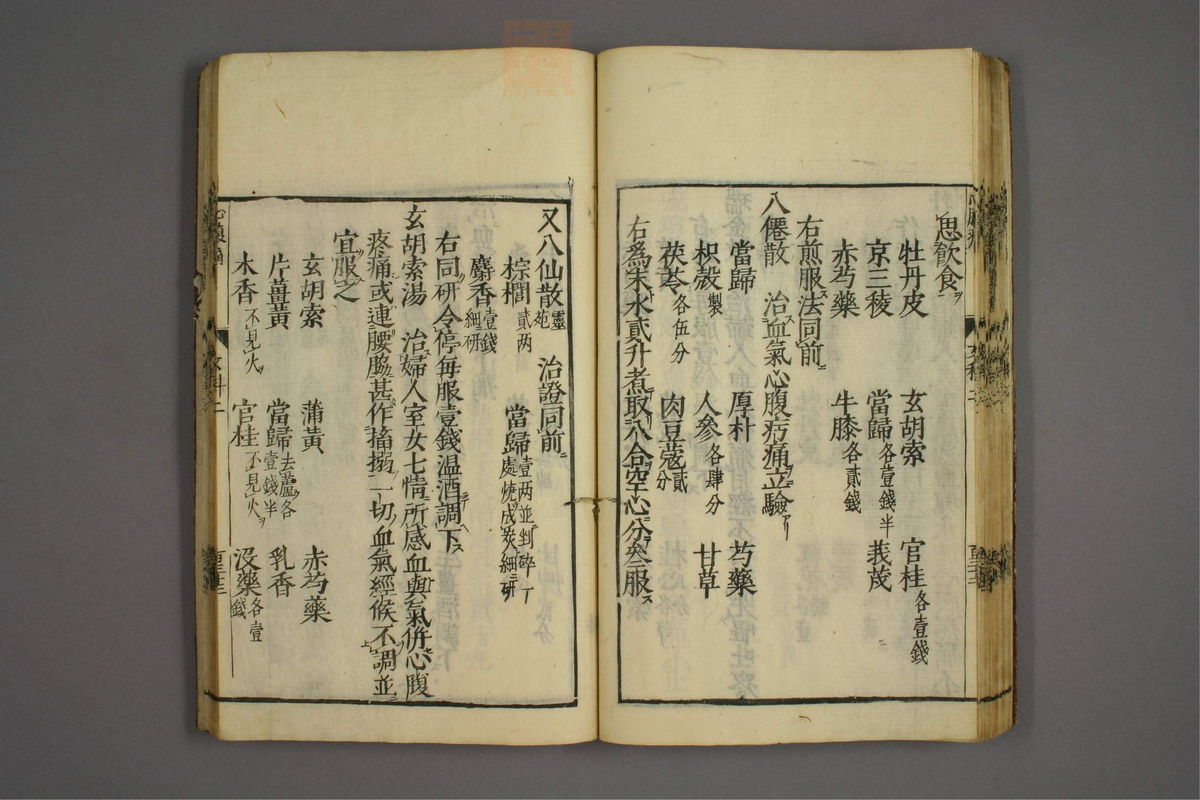 思飲食
牡丹皮　玄胡索　官桂各壹錢
京三稜　當歸各壹錢半　莪茂
赤芍藥　牛膝各貳錢
右煎服法同前
八僊散　治血氣心腹疞痛立驗
當歸　厚朴　芍藥
枳殼製　人參各肆分　甘草
茯苓各伍分　肉豆蔻貳分
右爲末水貳升煮取八合空心分叄服
又八仙散靈苑　治證同前
棕櫚貳两　當歸壹两並剉碎丁處燒成炭細研
麝香壹錢細研
右同研令停每服壹錢温酒調下
玄胡索湯　治婦人室女七情所感血與氣併心腹
疼痛或連腰脇甚作搐搦一切血氣經候不調並
宜服之
玄胡索　蒲黃　赤芍藥
片薑黃　當歸去蘆各壹錢半　乳香
木香不見火　官桂不見火　没藥各壹錢